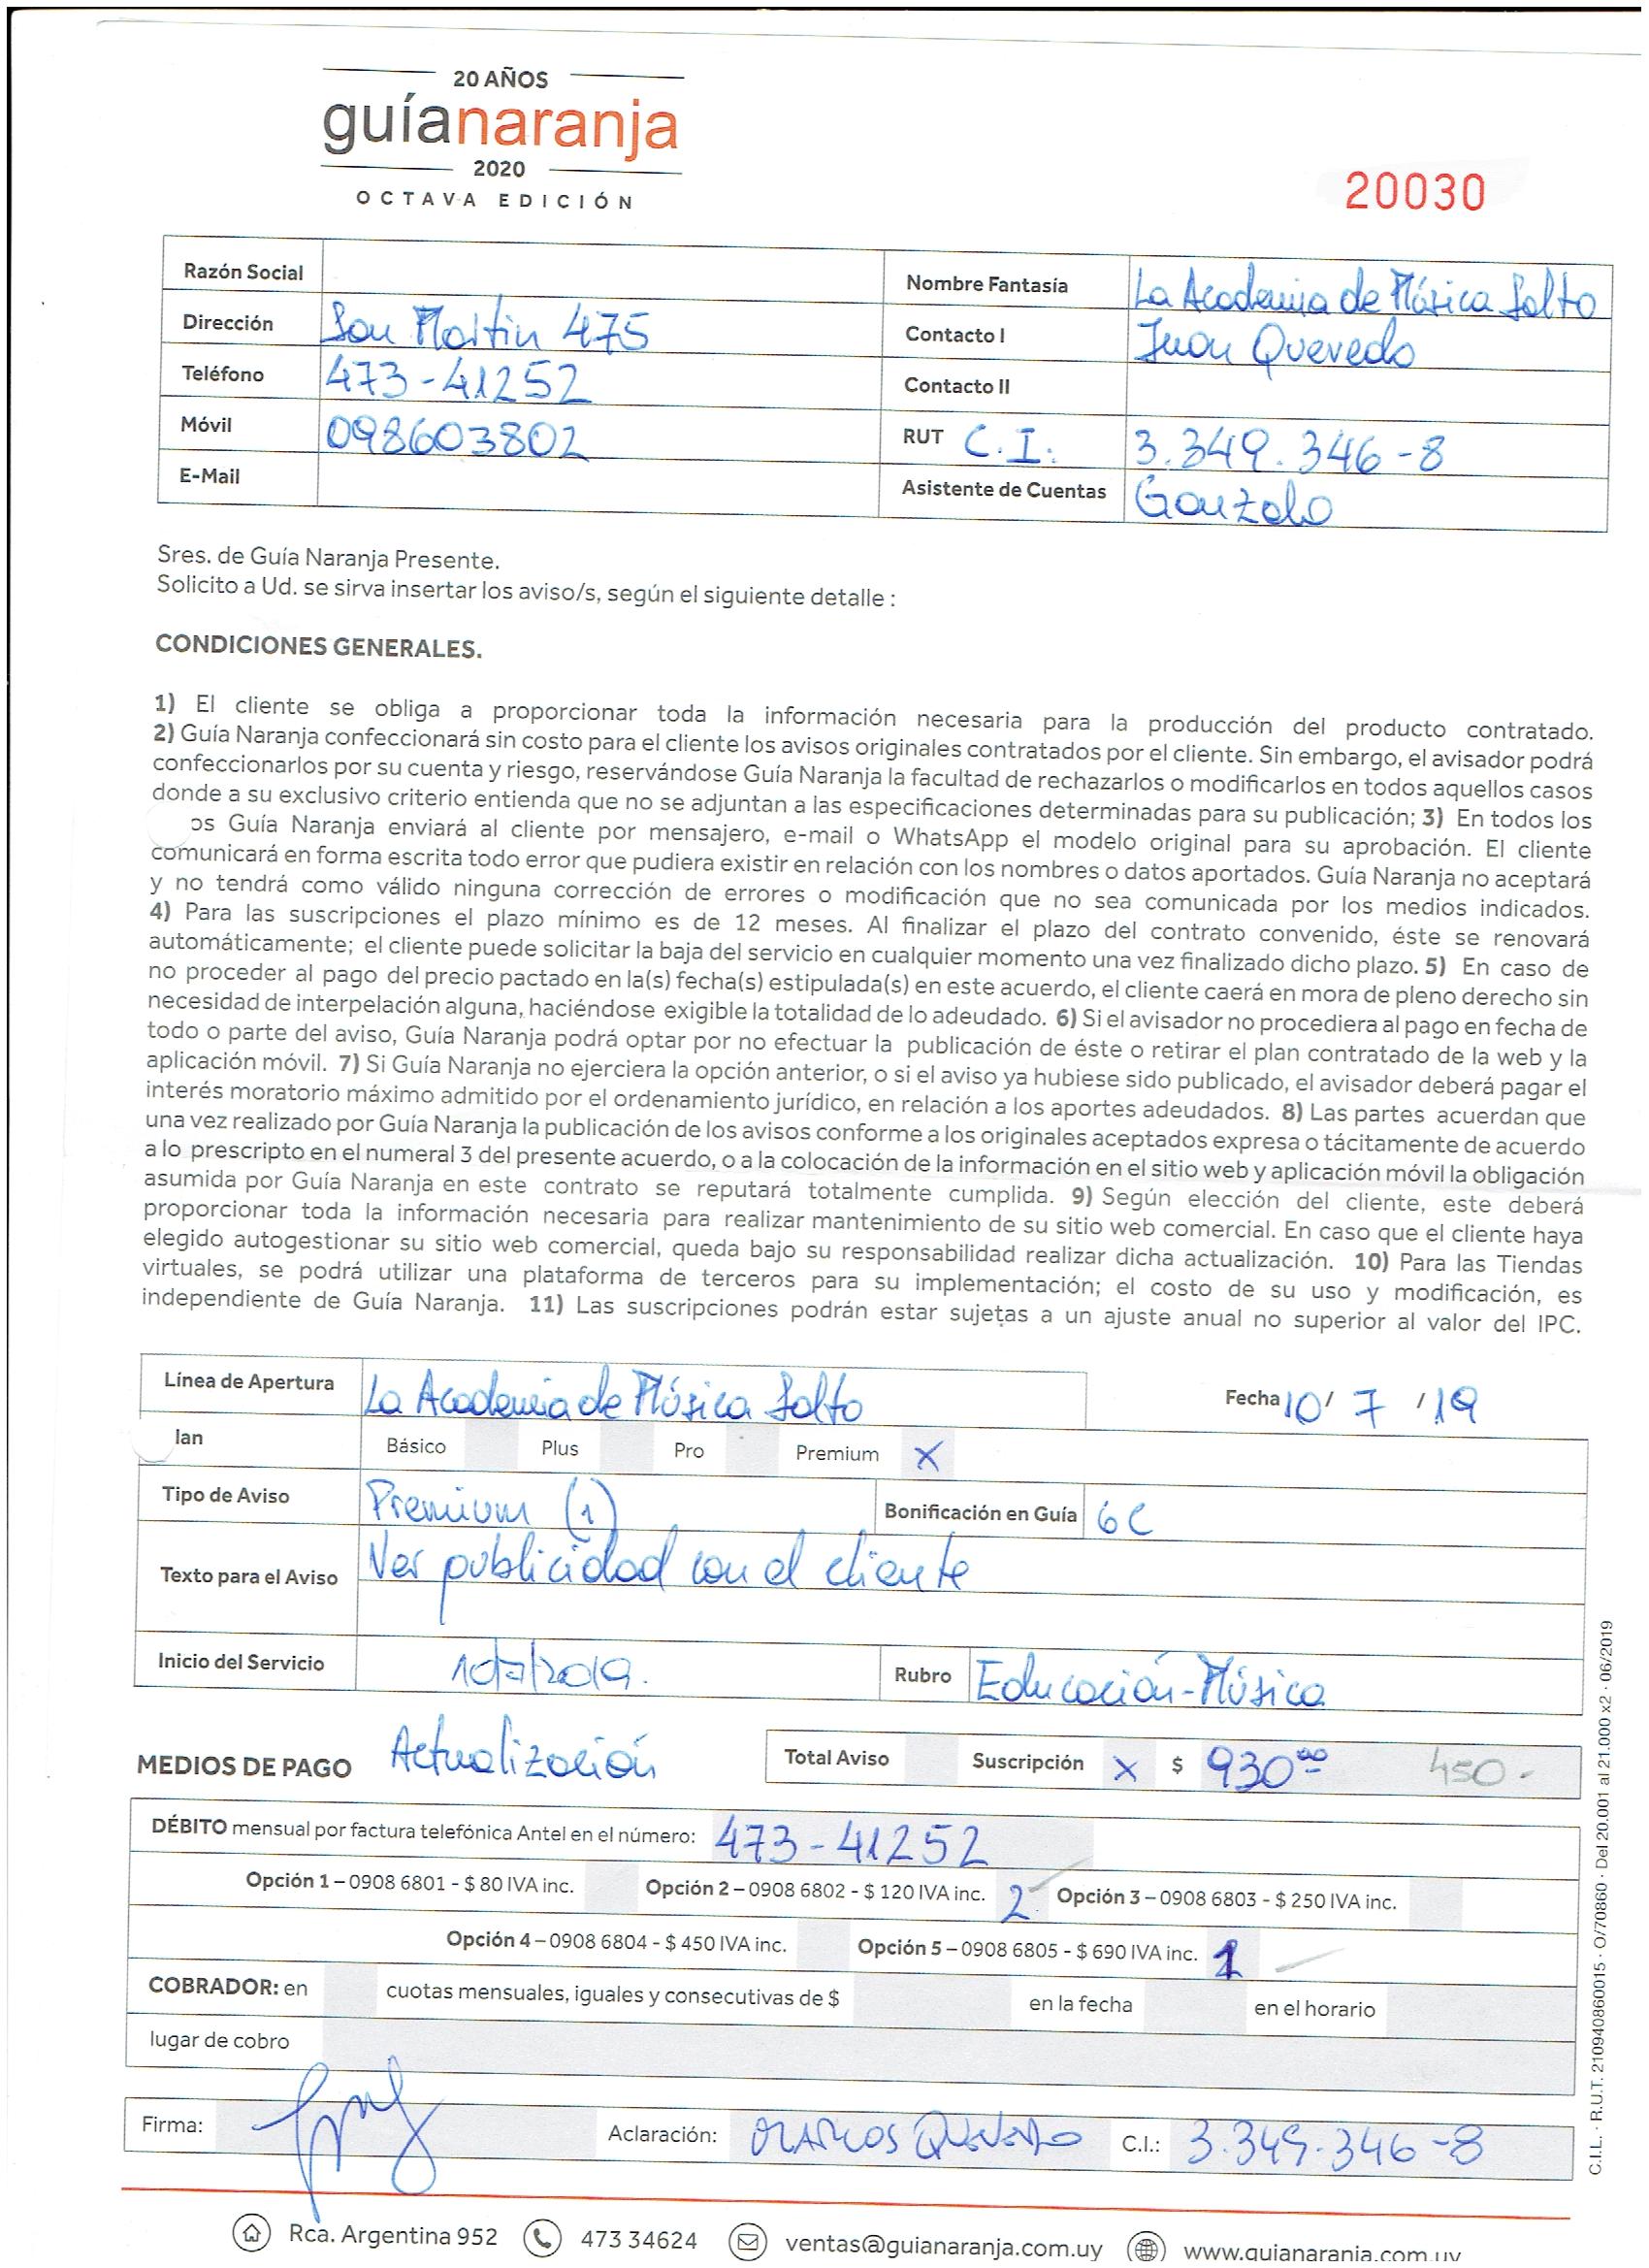 20 AÑOS
guíanaranja
2020
OCTAVA EDICIÓN
20030
Razón Social
Nombre Fantasía La Academia de Música Salto
Dirección San Martin 475
Contacto I Juan Quevedo
Teléfono 473-41252
Contacto II
Móvil 098603802
RUT C.I. 3.349.346-8
E-Mail
Asistente de Cuentas Gonzalo
Sres. de Guía Naranja Presente.
Solicito a Ud. se sirva insertar los aviso/s, según el siguiente detalle :
CONDICIONES GENERALES.
1) El cliente se obliga a proporcionar toda la información necesaria para la producción del producto contratado.
2) Guía Naranja confeccionará sin costo para el cliente los avisos originales contratados por el cliente. Sin embargo, el avisador podrá
confeccionarlos por su cuenta y riesgo, reservándose Guía Naranja la facultad de rechazarlos o modificarlos en todos aquellos casos
donde a su exclusivo criterio entienda que no se adjuntan a las especificaciones determinadas para su publicación; 3) En todos los
os Guía Naranja enviará al cliente por mensajero, e-mail o WhatsApp el modelo original para su aprobación. El cliente
comunicará en forma escrita todo error que pudiera existir en relación con los nombres o datos aportados. Guía Naranja no aceptará
y no tendrá como válido ninguna corrección de errores o modificación que no sea comunicada por los medios indicados.
4) Para las suscripciones el plazo mínimo es de 12 meses. Al finalizar el plazo del contrato convenido, éste se renovará
automáticamente; el cliente puede solicitar la baja del servicio en cualquier momento una vez finalizado dicho plazo. 5) En caso de
no proceder al pago del precio pactado en la(s) fecha(s) estipulada(s) en este acuerdo, el cliente caerá en mora de pleno derecho sin
necesidad de interpelación alguna, haciéndose exigible la totalidad de lo adeudado. 6) Si el avisador no procediera al pago en fecha de
todo o parte del aviso, Guía Naranja podrá optar por no efectuar la publicación de éste o retirar el plan contratado de la web y la
aplicación móvil. 7) Si Guía Naranja no ejerciera la opción anterior, o si el aviso ya hubiese sido publicado, el avisador deberá pagar el
interés moratorio máximo admitido por el ordenamiento jurídico, en relación a los aportes adeudados. 8) Las partes acuerdan que
una vez realizado por Guía Naranja la publicación de los avisos conforme a los originales aceptados expresa o tácitamente de acuerdo
a lo prescripto en el numeral 3 del presente acuerdo, o a la colocación de la información en el sitio web y aplicación móvil la obligación
asumida por Guía Naranja en este contrato se reputará totalmente cumplida. 9) Según elección del cliente, este deberá
proporcionar toda la información necesaria para realizar mantenimiento de su sitio web comercial. En caso que el cliente haya
elegido autogestionar su sitio web comercial, queda bajo su responsabilidad realizar dicha actualización. 10) Para las Tiendas
virtuales, se podrá utilizar una plataforma de terceros para su implementación; el costo de su uso y modificación, es
independiente de Guía Naranja. 11) Las suscripciones podrán estar sujetas a un ajuste anual no superior al valor del IPC.
Línea de Apertura La Academia de Música Salto
Fecha 10/ 7 /19
lan Básico Plus Pro Premium X
Tipo de Aviso Premium (1)
Bonificación en Guía 6C
Texto para el Aviso Ver publicidad con el cliente
Inicio del Servicio 10/7/2019.
Rubro Educación-Música
MEDIOS DE PAGO Actualización
Total Aviso Suscripción X $ 930 00 450.-
DÉBITO mensual por factura telefónica Antel en el número: 473-41252
Opción 1 – 0908 6801 - $ 80 IVA inc. Opción 2 – 0908 6802 - $ 120 IVA inc. 2 Opción 3 – 0908 6803 - $ 250 IVA inc.
Opción 4 – 0908 6804 - $ 450 IVA inc. Opción 5 – 0908 6805 - $ 690 IVA inc. 1
COBRADOR: en cuotas mensuales, iguales y consecutivas de $ en la fecha en el horario
lugar de cobro
Firma: Aclaración: MARCOS QUEVEDO C.I.: 3.349.346-8
Rca. Argentina 952 473 34624 ventas@guianaranja.com.uy www.guianaranja.com.uy
C.I.L. · R.U.T. 210940860015 · O/70860 · Del 20.001 al 21.000 x2 · 06/2019